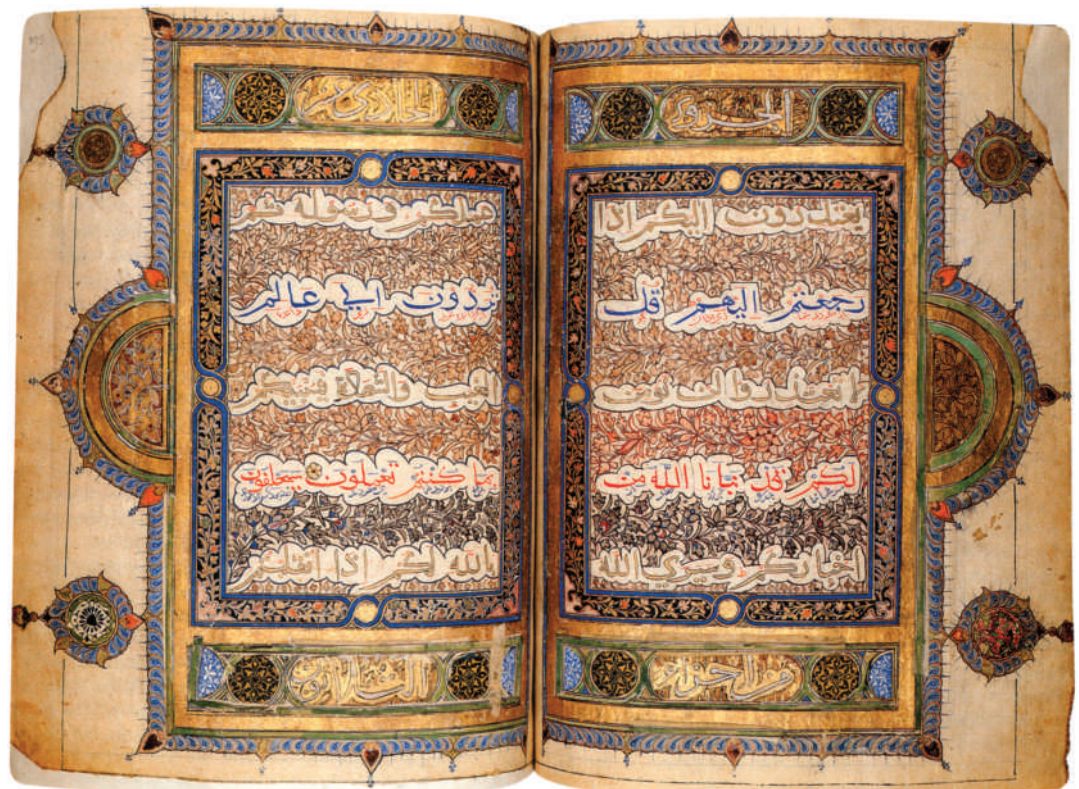 الجزو
يعتذرون اليكم اذا
رجعتم اليهم قل
لا تعتذروا لن نومن
لكم قد نبانا الله من
اخباركم وسيرى الله
من اجزاء
الحادي عشر
عملكم ورسوله ثم
تردون الى عالم
الغيب والشهادة فينبيكم
بما كنتم تعملون سيحلفون
بالله لكم اذا انقلبتم
الثلاثين